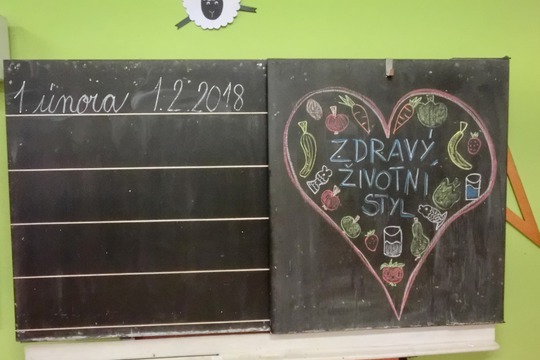 1. února 1.2.2018
ZDRAVÝ
ŽIVOTNÍ
STYL